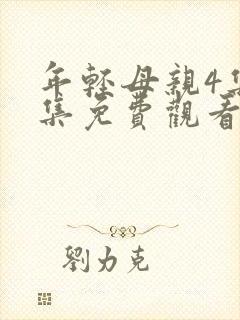 年輕母親4集
集免費觀看
劉力克